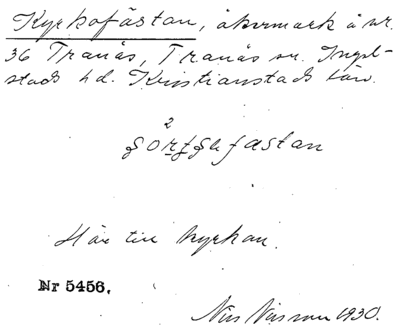 Kyrkofästan, åkermark å nr.
36 Tranås, Tranås sn. Ingel-
stads hd. Kristianstads län.
Hör till kyrkan.
Nr 5456.
Nils Nilsson 1930.